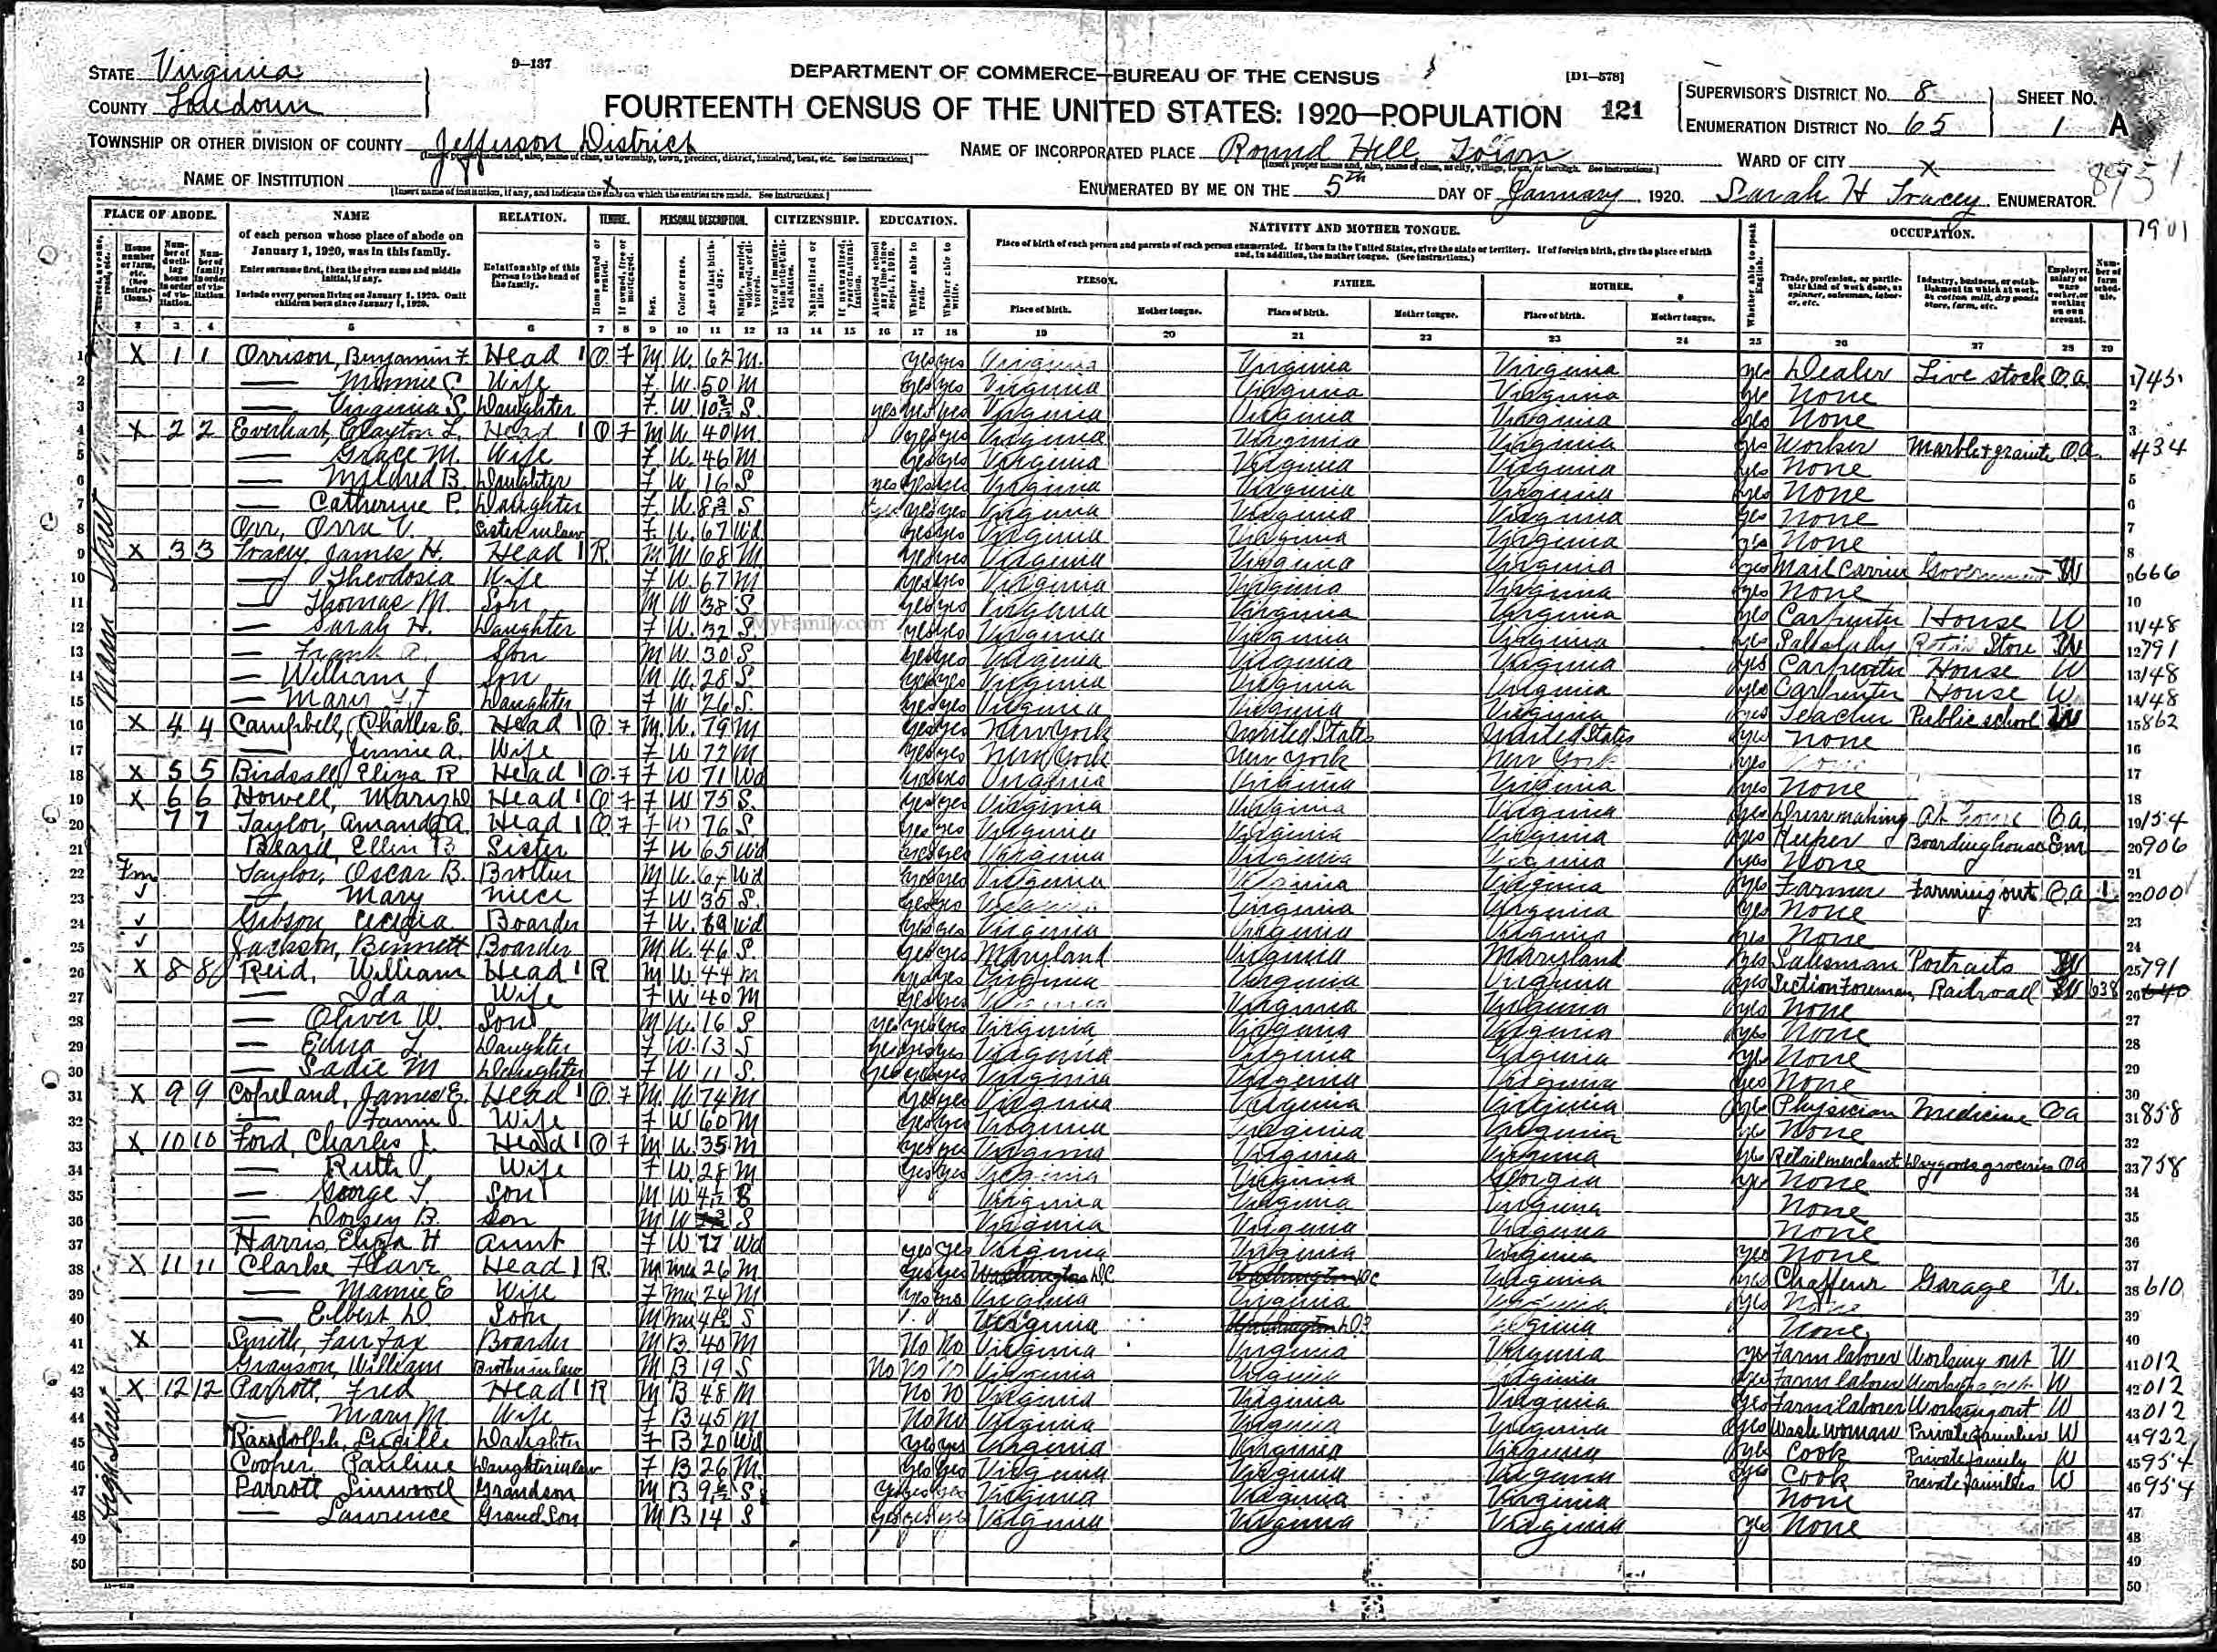 STATE Virginia
9-137
DEPARTMENT OF COMMERCE—BUREAU OF THE CENSUS
[D1-578]
COUNTY Loudoun
FOURTEENTH CENSUS OF THE UNITED STATES: 1920—POPULATION 121
SUPERVISOR'S DISTRICT No. 8
SHEET No. 1 A
ENUMERATION DISTRICT No. 65
TOWNSHIP OR OTHER DIVISION OF COUNTY Jefferson District
NAME OF INCORPORATED PLACE Round Hill, Town
WARD OF CITY X
NAME OF INSTITUTION X
ENUMERATED BY ME ON THE 5th DAY OF January, 1920. Sarah H Tracey ENUMERATOR.
7901
PLACE OF ABODE. NAME RELATION. TENURE. PERSONAL DESCRIPTION. CITIZENSHIP. EDUCATION. NATIVITY AND MOTHER TONGUE. OCCUPATION.
of each person whose place of abode on January 1, 1920, was in this family.
Enter surname first, then the given name and middle initial, if any.
Include every person living on January 1, 1920. Omit children born since January 1, 1920.
Relationship of this person to the head of the family.
Place of birth of each person and parents of each person enumerated. If born in the United States, give the state or territory. If of foreign birth, give the place of birth and, in addition, the mother tongue. (See Instructions.)
PERSON. FATHER. MOTHER.
Place of birth. Mother tongue. Place of birth. Mother tongue. Place of birth. Mother tongue.
Main Street
1 X 1 1 Orrison, Benjamin F. Head 1 O F M W 62 M yes yes Virginia Virginia Virginia yes Dealer Live stock O.a. 745
2 — Minnie C. Wife F W 50 M yes yes Virginia Virginia Virginia yes None
3 — Virginia S. Daughter F W 10 S yes yes yes Virginia Virginia Virginia yes None
4 X 2 2 Everhart, Clayton L. Head 1 O F M W 40 M yes yes Virginia Virginia Virginia yes Worker Marble & granite O.a. 434
5 — Grace M. Wife F W 46 M yes yes Virginia Virginia Virginia yes None
6 — Mildred B. Daughter F W 16 S yes yes yes Virginia Virginia Virginia yes None
7 — Catherine P. Daughter F W 8 S yes yes yes Virginia Virginia Virginia yes None
8 Orr, Orra V. Sister in law F W 67 Wd yes yes Virginia Virginia Virginia yes None
9 X 3 3 Tracey, James H. Head 1 R M W 68 M yes yes Virginia Virginia Virginia yes Mail Carrier Government W 666
10 — Theodosia Wife F W 67 M yes yes Virginia Virginia Virginia yes None
11 — Thomas M. Son M W 38 S yes yes Virginia Virginia Virginia yes Carpenter House W 148
12 — Sarah H. Daughter F W 32 S yes yes Virginia Virginia Virginia yes Saleslady Retail Store W 791
13 — Frank A. Son M W 30 S yes yes Virginia Virginia Virginia yes Carpenter House W 148
14 — William J Son M W 28 S yes yes Virginia Virginia Virginia yes Carpenter House W 148
15 — Mary Daughter F W 26 S yes yes Virginia Virginia Virginia yes Teacher Public school W 862
16 X 4 4 Campbell, Charles E. Head 1 O F M W 79 M yes yes New York United States United States yes None
17 — Jennie A. Wife F W 72 M yes yes New York New York New York yes None
18 X 5 5 Birdsall, Eliza R Head 1 O F F W 71 Wd yes yes Virginia Virginia Virginia yes None
19 X 6 6 Howell, Mary D Head 1 O F F W 75 S yes yes Virginia Virginia Virginia yes Dressmaking At home O.a. 154
20 7 7 Taylor, Amanda A. Head 1 O F F W 76 S yes yes Virginia Virginia Virginia yes Keeper Boardinghouse Em 906
21 Beard, Ellen B. Sister F W 65 Wd yes yes Virginia Virginia Virginia yes None
22 Fm Taylor, Oscar B. Brother M W 64 Wd yes yes Virginia Virginia Virginia yes Farmer Farming out O.a 1 000
23 — Mary Niece F W 35 S yes yes Virginia Virginia Virginia yes None
24 Gibson, Boarder F W 69 Wd yes yes Virginia Virginia Virginia yes None
25 Jackson, Bennett Boarder M W 46 S yes yes Maryland Virginia Maryland yes Salesman Portraits W 791
26 X 8 8 Reid, William Head 1 R M W 44 M yes yes Virginia Virginia Virginia yes Section Foreman Railroad W 638 640
27 — Ida Wife F W 40 M yes yes Virginia Virginia Virginia yes None
28 — Oliver W. Son M W 16 S yes yes yes Virginia Virginia Virginia yes None
29 — Edna L. Daughter F W 13 S yes yes yes Virginia Virginia Virginia yes None
30 — Sadie M Daughter F W 11 S yes yes yes Virginia Virginia Virginia yes None
31 X 9 9 Copeland, James E. Head 1 O F M W 74 M yes yes Virginia Virginia Virginia yes Physician Medicine O.a 858
32 — Fannie Wife F W 60 M yes yes Virginia Virginia Virginia yes None
33 X 10 10 Ford, Charles J. Head 1 O F M W 35 M yes yes Virginia Virginia Virginia yes Retail merchant Dry goods groceries O.a 758
34 — Ruth Wife F W 28 M yes yes Virginia Virginia Georgia yes None
35 — George T. Son M W 4 S Virginia Virginia Virginia None
36 — Dorsey B. Son M W S Virginia Virginia Virginia None
37 Harris, Eliza H Aunt F W 77 Wd yes yes Virginia Virginia Virginia yes None
38 X 11 11 Clarke, Flave Head 1 R M Mu 26 M yes yes Washington D.C Washington D.C Virginia yes Chaffeur Garage W. 610
39 — Mamie E Wife F Mu 24 M yes no Virginia Virginia Virginia yes None
40 — Elbert D Son M Mu 4 S Virginia Washington D.C Virginia None
41 X Smith, Fairfax Boarder M B 40 M No No Virginia Virginia Virginia yes Farm laborer Working out W 012
42 Grayson, William Brother in law M B 19 S No No No Virginia Virginia Virginia yes Farm laborer Working out W 012
High Street
43 X 12 12 Parrott, Fred Head 1 R M B 48 M No No Virginia Virginia Virginia yes Farm laborer Working out W 012
44 — Mary M. Wife F B 45 M No No Virginia Virginia Virginia yes Wash woman Private families W 922
45 Randolph, Lucille Daughter F B 20 Wd yes yes Virginia Virginia Virginia yes Cook Private family W 954
46 Cooper, Pauline Daughter in law F B 26 M yes yes Virginia Virginia Virginia yes Cook Private families W 954
47 Parrott Linwood Grandson M B 9 S yes yes yes Virginia Virginia Virginia None
48 — Lawrence Grand Son M B 14 S yes yes yes Virginia Virginia Virginia yes None
49
50
MyFamily.com